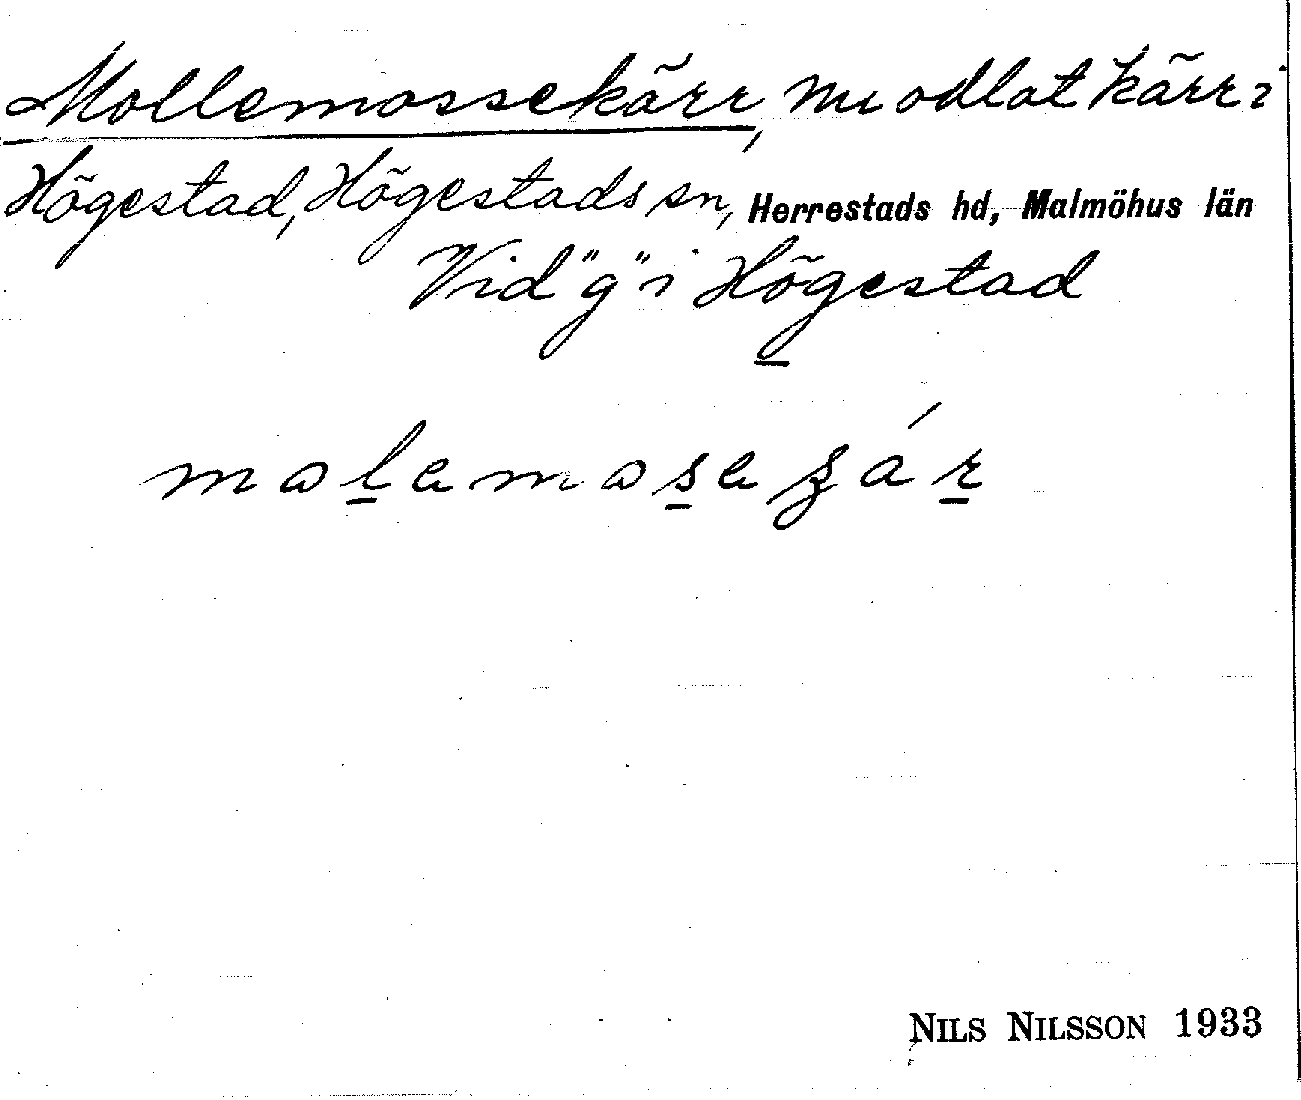 Mollemossekärr, nu odlat kärr i
Högestad, Högestads sn, Herrestads hd, Malmöhus län
Vid "g" i Högestad
NILS NILSSON 1933